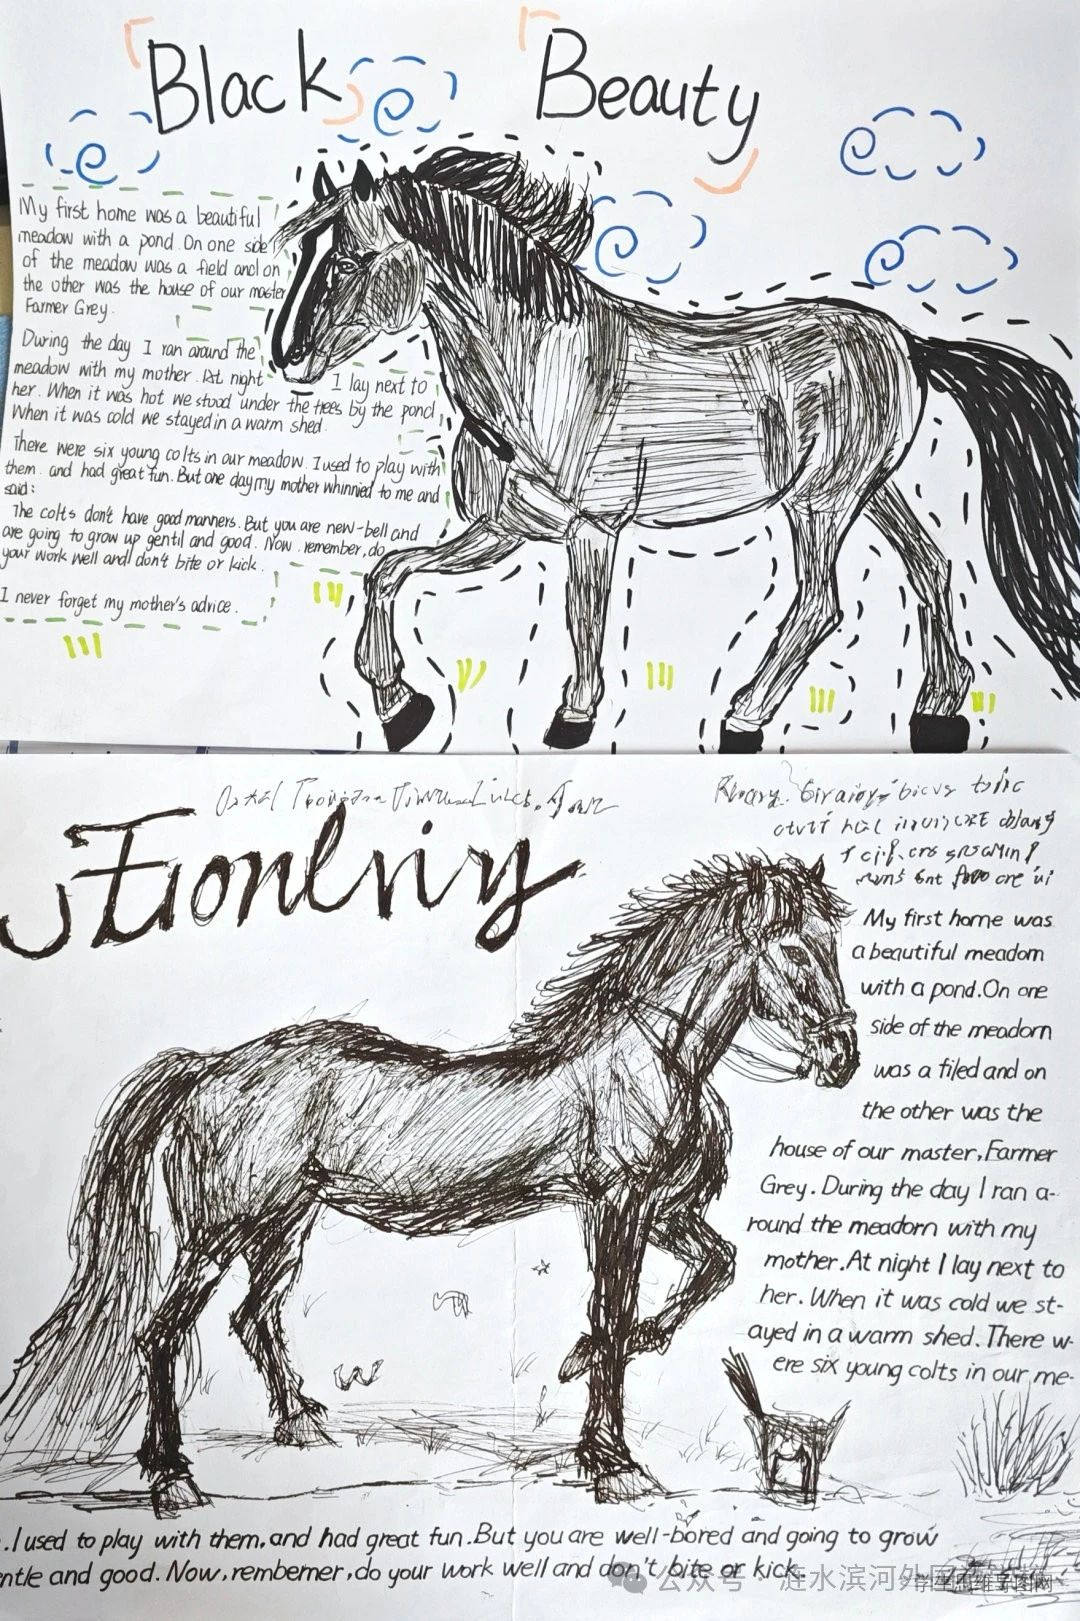 Black Beauty
My first home was a beautiful
meadow with a pond. On one side
of the meadow was a field and on
the other was the house of our master
Farmer Grey.
During the day I ran around the
meadow with my mother. At night I lay next to
her. When it was hot we stood under the trees by the pond,
When it was cold we stayed in a warm shed.
There were six young colts in our meadow. I used to play with
them. and had great fun. But one day my mother whinnied to me and
said:
The colts don't have good manners. But you are new-bell and
are going to grow up gentil and good. Now, remember, do
your work well and don't bite or kick.
I never forget my mother's advice.
My first home was
a beautiful meadorn
with a pond. On one
side of the meadorn
was a filed and on
the other was the
house of our master, Farmer
Grey. During the day I ran a-
round the meadorn with my
mother. At night I lay next to
her. When it was cold we st-
ayed in a warm shed. There w-
ere six young colts in our me-
. I used to play with them, and had great fun. But you are well-bored and going to grow
ntle and good. Now, rembemer, do your work well and don't bite or kick.
公众号 · 涟水滨河外国